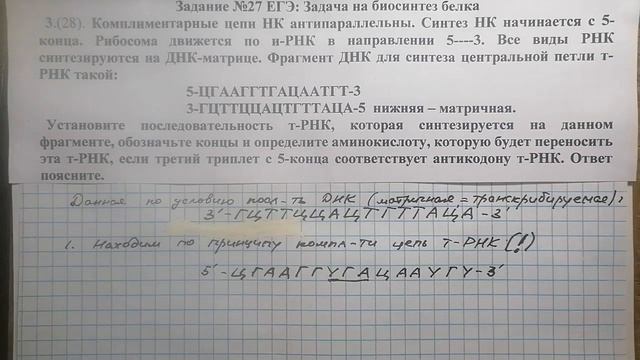 Задание №27 ЕГЭ: Задача на биосинтез белка
3.(28). Комплиментарные цепи НК антипараллельны. Синтез НК начинается с 5-
конца. Рибосома движется по и-РНК в направлении 5----3. Все виды РНК
синтезируются на ДНК-матрице. Фрагмент ДНК для синтеза центральной петли т-
РНК такой:
5-ЦГААГГТГАЦААТГТ-3
3-ГЦТТЦЦАЦТГТТАЦА-5 нижняя – матричная.
Установите последовательность т-РНК, которая синтезируется на данном
фрагменте, обозначьте концы и определите аминокислоту, которую будет переносить
эта т-РНК, если третий триплет с 5-конца соответствует антикодону т-РНК. Ответ
поясните.
Данная по условию посл-ть ДНК (матричная = транскрибируемая):
3'-ГЦТТЦЦАЦТГТТАЦА-3'
1. Находим по принципу компл-ти цепь т-РНК(!)
5'-ЦГААГГУГАЦААУГУ-3'